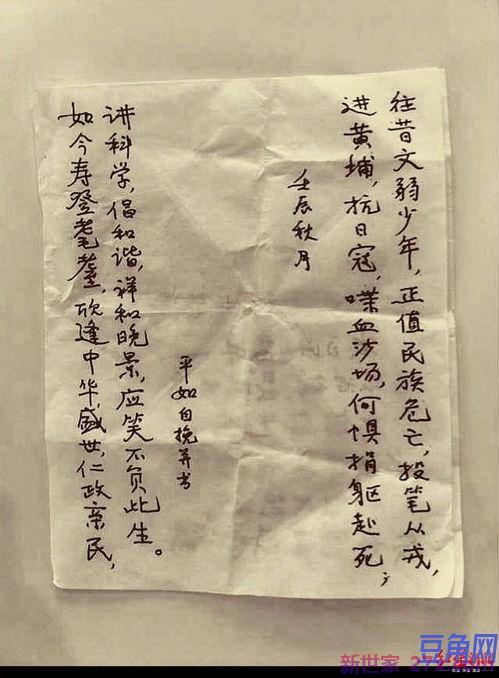 往昔文弱少年,正值民族危亡,投笔从戎,
进黄埔,抗日寇,喋血沙场,何惧捐躯赴死;
壬辰秋月
如今寿登耄耋,欣逢中华盛世,仁政亲民,
讲科学,倡和谐,祥和晚景,应笑不负此生。
平如自挽并书
豆角网
新世家